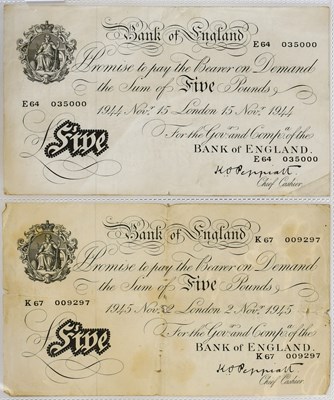 Bank of England
E64 035000
Promise to pay the Bearer on Demand
E64 035000 the Sum of Five Pounds
1944 Novr. 15 London 15 Novr. 1944
For the Govr. and Compa. of the
Five BANK OF ENGLAND.
E64 035000
K O Peppiatt
Chief Cashier.
Bank of England
K67 009297
Promise to pay the Bearer on Demand
K67 009297 the Sum of Five Pounds
1945 Novr. 2 London 2 Novr. 1945
For the Govr. and Compa. of the
Five BANK OF ENGLAND.
K67 009297
K O Peppiatt
Chief Cashier.